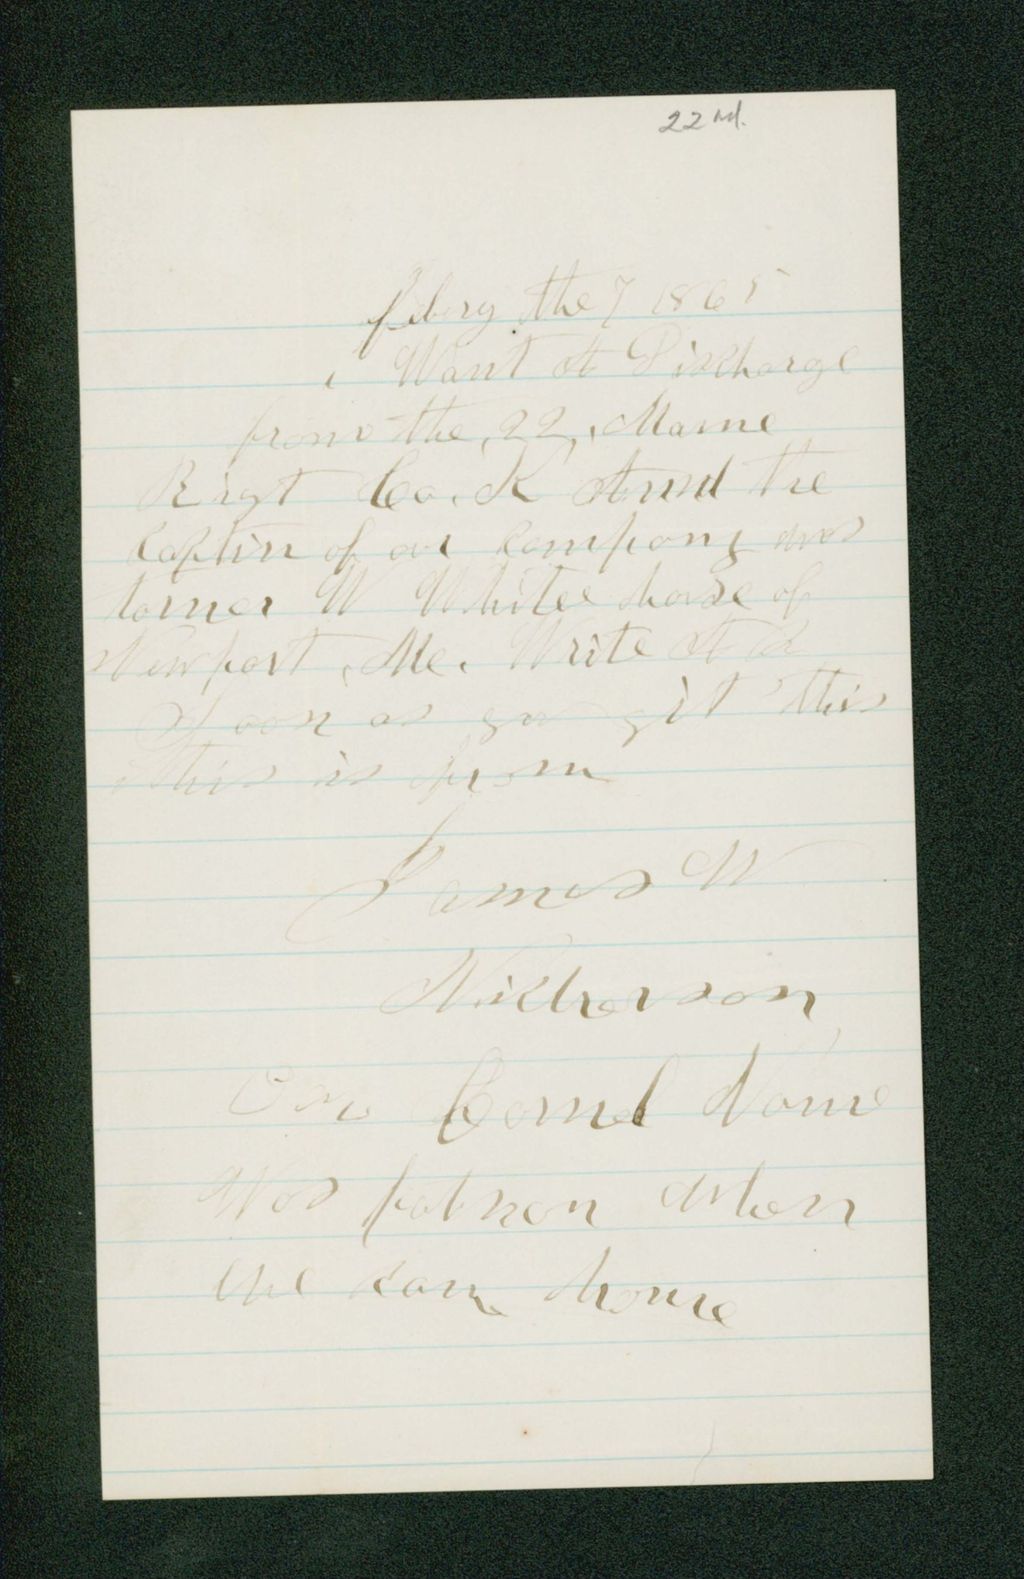 22nd.
febury the 7 1865
i Want A Discharge
from the, 22, Maine
Rigt Co. K And the
Captin of our company was
W White house of
Newport, Me. Write A
Soon as you git this
this is from
James W
Nickerson
Our Cornel Name
Was when
we came home